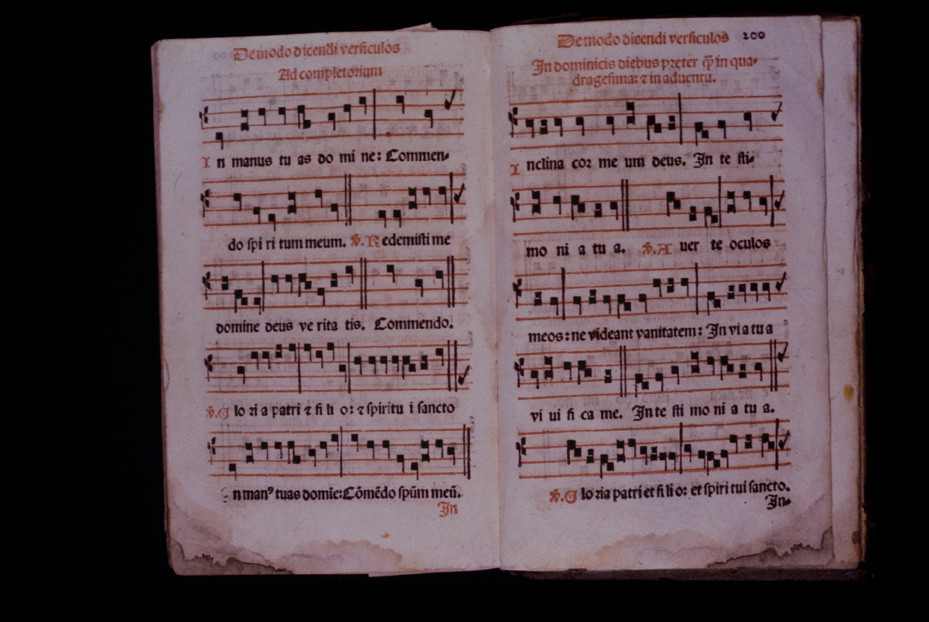 De modo dicendi versiculos
Ad completorium
In manus tu as do mi ne: Commen-
do spi ri tum meum. ℣. Redemisti me
domine deus ve rita tis. Commendo.
℣. Glo ri a patri ⁊ fi li o: ⁊ spiritu i sancto
In manꝰ tuas domie: Cõmẽdo spũm meũ.
In
De modo dicendi versiculos 200
In dominicis diebus preter q̃ in qua-
dragesima: ⁊ in aduentu.
Inclina cor me um deus. In te sti-
mo ni a tu a. ℣. Auer te oculos
meos: ne videant vanitatem: In vi a tu a
vi ui fi ca me. In te sti mo ni a tu a.
℣. Glo ria patri et fi li o: et spiri tui sancto.
In-